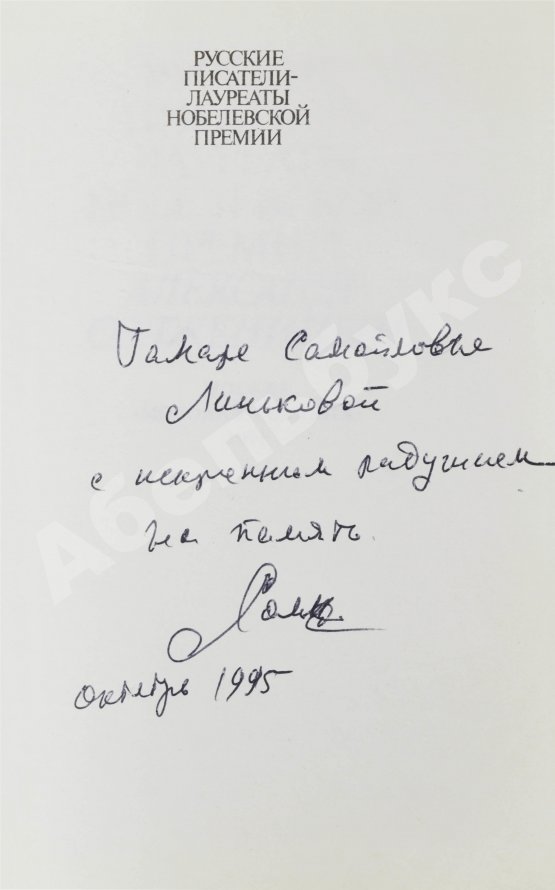 РУССКИЕ
ПИСАТЕЛИ-
ЛАУРЕАТЫ
НОБЕЛЕВСКОЙ
ПРЕМИИ
Тамаре Самойловне
Линьковой
с искренним радушием
на память.
октябрь 1995
Абельбукс